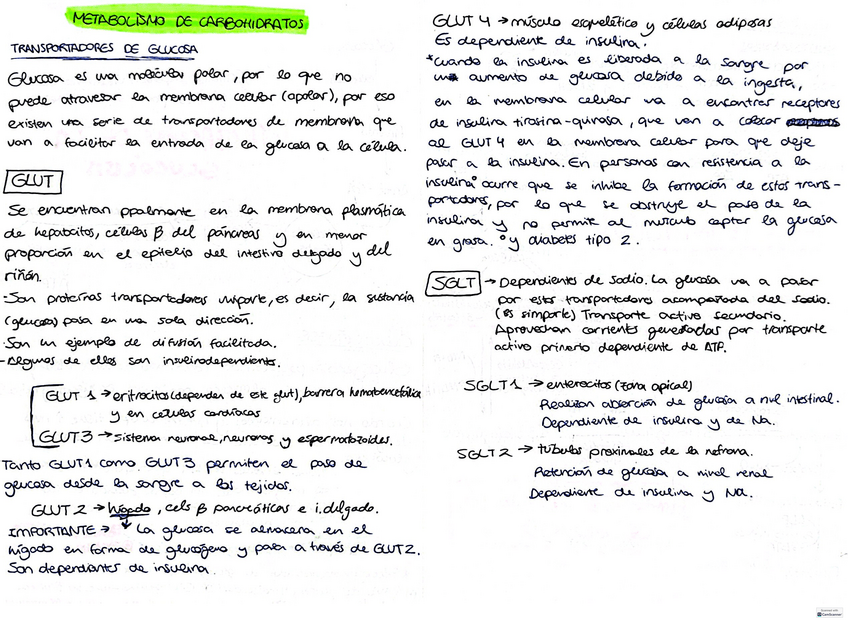 METABOLISMO DE CARBOHIDRATOS
TRANSPORTADORES DE GLUCOSA
Glucosa es una molécula polar, por lo que no
puede atravesar la membrana celular (apolar), por eso
existen una serie de transportadores de membrana que
van a facilitar la entrada de la glucosa a la célula.
GLUT
Se encuentran ppalmente en la membrana plasmática
de hepatocitos, células β del páncreas y en menor
proporción en el epitelio del intestino delgado y del
riñón.
-Son proteínas transportadores uniporte, es decir, la sustancia
(glucosa) pasa en una sola dirección.
-Son un ejemplo de difusión facilitada.
-Algunos de ellos son insulinodependientes.
GLUT 1 → eritrocitos (dependen de este glut), barrera hematoencefálica
y en células cardíacas
GLUT 3 → sistema neuronal, neuronas y espermatozoides.
Tanto GLUT1 como GLUT3 permiten el paso de
glucosa desde la sangre a los tejidos.
GLUT 2 → hígado, cels β pancreáticas e i. delgado.
IMPORTANTE → La glucosa se almacena en el
hígado en forma de glucógeno y pasa a través de GLUT2.
Son dependientes de insulina.
GLUT 4 → músculo esquelético y células adiposas
Es dependiente de insulina.
*Cuando la insulina es liberada a la sangre por
un aumento de glucosa debido a la ingesta,
en la membrana celular va a encontrar receptores
de insulina tirosina-quinasa, que van a colocar
al GLUT 4 en la membrana celular para que deje
pasar a la insulina. En personas con resistencia a la
insulina° ocurre que se inhibe la formación de estos trans-
portadores, por lo que se obstruye el paso de la
insulina y no permite al músculo captar la glucosa
en grasa. ° y diabetes tipo 2.
SGLT → Dependientes de sodio. La glucosa va a pasar
por estos transportadores acompañada del sodio.
(es simporte) Transporte activo secundario.
Aprovechan corrientes generadas por transporte
activo primario dependiente de ATP.
SGLT 1 → enterocitos (zona apical)
Realizan absorción de glucosa a nivel intestinal.
Dependiente de insulina y de Na.
SGLT 2 → túbulos proximales de la nefrona.
Retención de glucosa a nivel renal
Dependiente de insulina y Na.
CamScanner